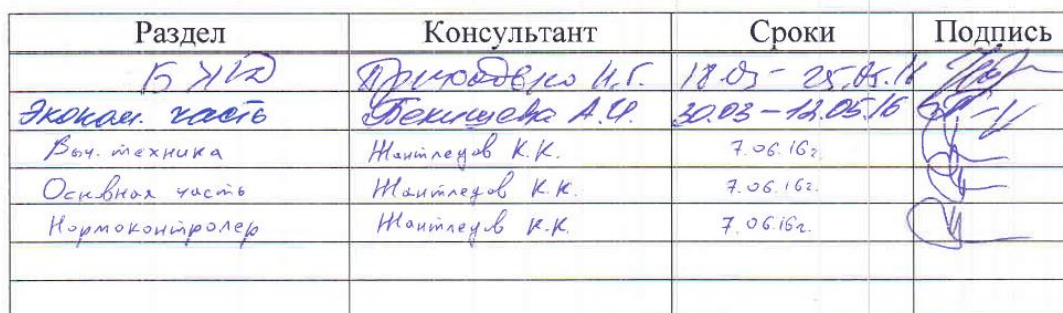 Раздел Консультант Сроки Подпись
БЖД Приходько Н.Г. 18.03 - 25.05.16
Эконом. часть Бекишева А.И. 30.03 - 12.05.16
Выч. техника Жантлеуов К.К. 7.06.16г.
Основная часть Жантлеуов К.К. 7.06.16г.
Нормоконтролер Жантлеуов К.К. 7.06.16г.